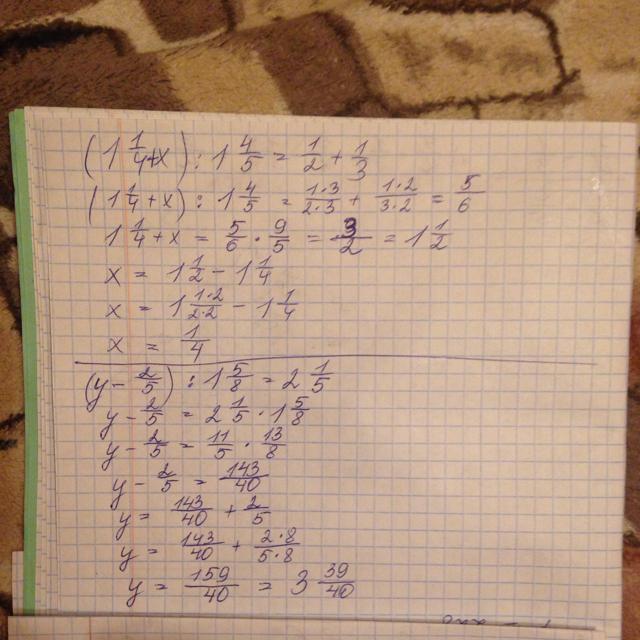 (1 1/4 + x) : 1 4/5 = 1/2 + 1/3
(1 1/4 + x) : 1 4/5 = 1·3/2·3 + 1·2/3·2 = 5/6
1 1/4 + x = 5/6 · 9/5 = 3/2 = 1 1/2
x = 1 1/2 - 1 1/4
x = 1 1·2/2·2 - 1 1/4
x = 1/4
(y - 2/5) : 1 5/8 = 2 1/5
y - 2/5 = 2 1/5 · 1 5/8
y - 2/5 = 11/5 · 13/8
y - 2/5 = 143/40
y = 143/40 + 2/5
y = 143/40 + 2·8/5·8
y = 159/40 = 3 39/40